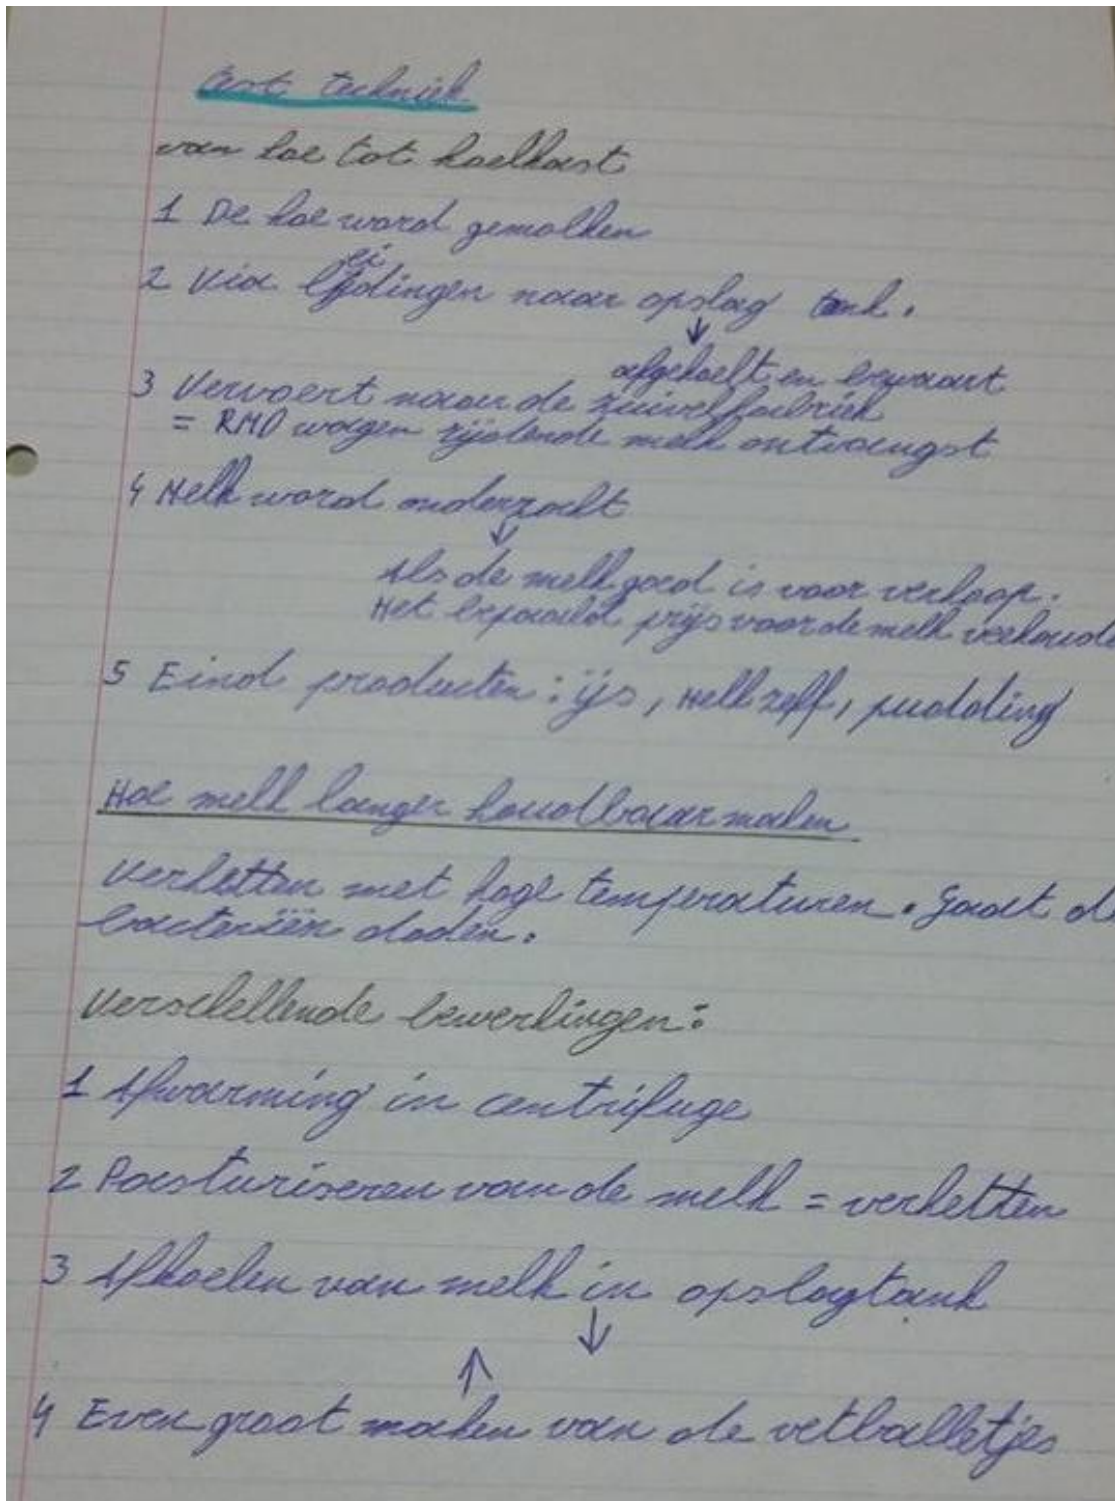 test techniek
van koe tot koelkast
1 De koe word gemolken
2 Via leidingen naar opslag tank.
↓
afgekoelt en bewaart
3 Vervoert naar de zuivelfabriek
= RMO wagen rijdende melk ontvangst
4 Melk word onderzocht
↓
Als de melk goed is voor verkoop.
Het bepaald prijs voor de melk veehoude
5 Eind producten: ijs, melk zelf, pudding
Hoe melk langer houdbaar maken
Verhetten met hoge temperaturen. Gaat d
bacteriën doden.
Verschellende bewerkingen:
1 Afwarming in centrifuge
2 Pasturiseren van de melk = verhetten
3 Afkoelen van melk in opslagtank
↓
↑
4 Even groot maken van de vetballetjes